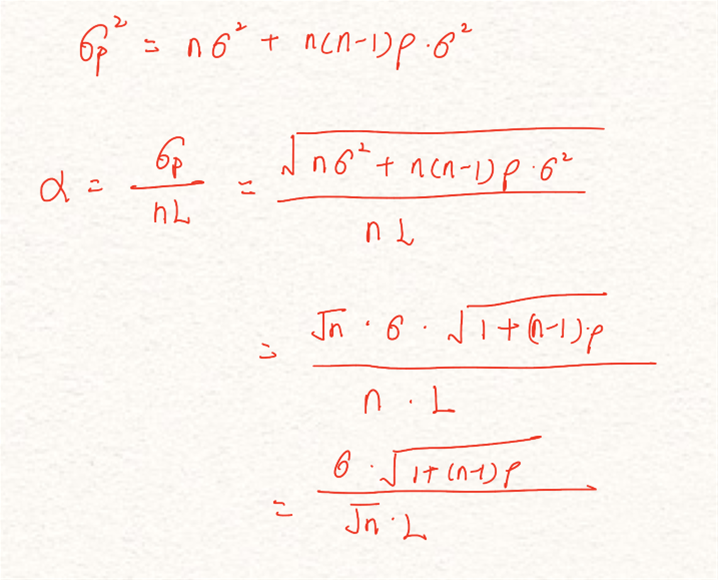 σp² = nσ² + n(n-1)ρ·σ²
α = σp / nL = √(nσ² + n(n-1)ρ·σ²) / nL
= √n · σ · √(1+(n-1)·ρ) / n · L
= σ · √(1+(n-1)ρ) / √n · L